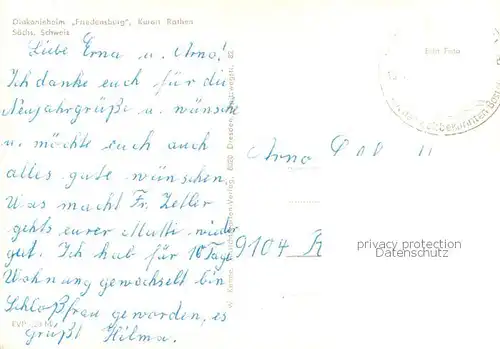 Diakonieheim „Friedensburg", Kurort Rathen
Sächs. Schweiz
Liebe Erna u. Arno!
Ich danke euch für die
Neujahrgrüße u. wünsche
u. möchte euch auch
alles gute wünschen
Was macht Fr. Zetler
gehts eurer Mutti wieder
gut. Ich hab für 10 Tage
Wohnung gewechselt bin
Schloßfrau geworden, es
grüßt Hilma.
EVP
Echt Foto
Arno
9104
privacy protection
Datenschutz
Verlag, 8020 Dresden